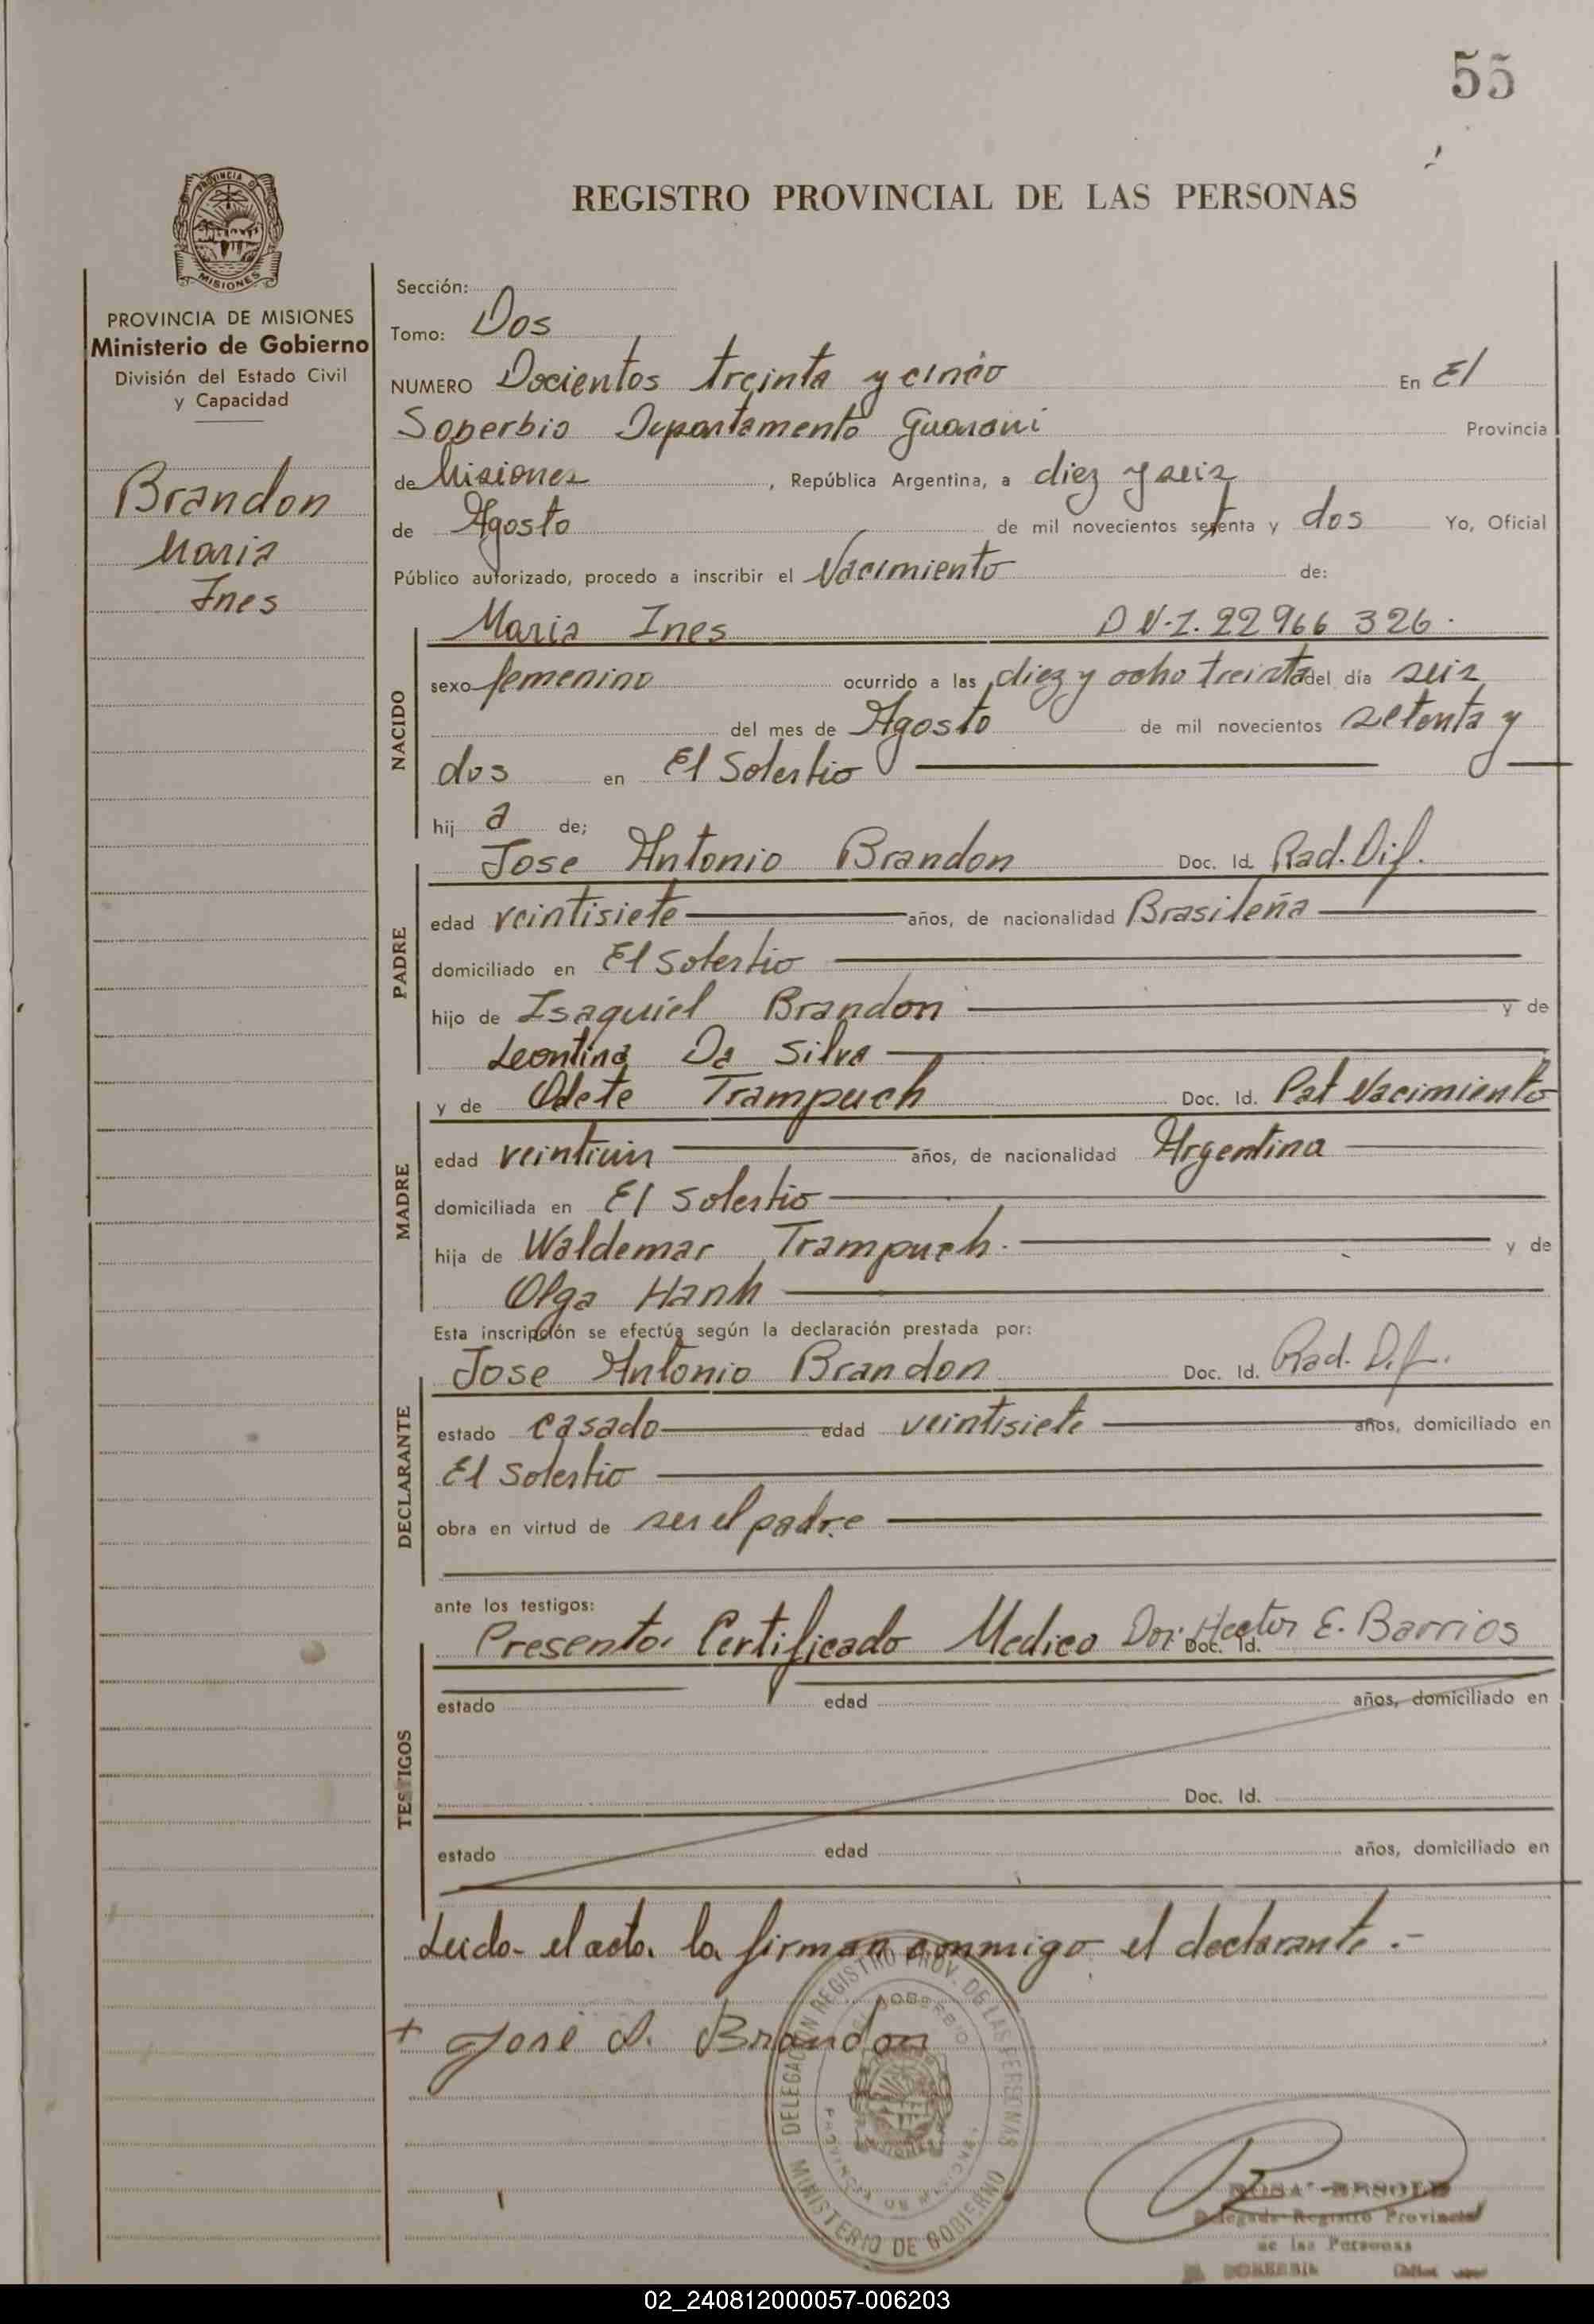 55
REGISTRO PROVINCIAL DE LAS PERSONAS
PROVINCIA DE
MISIONES
PROVINCIA DE MISIONES
Ministerio de Gobierno
División del Estado Civil
y Capacidad
Brandon
Maria
Ines
Sección:
Tomo: Dos
NUMERO Docientos treinta y cinco En El
Soberbio Departamento Guarani Provincia
de Misiones, República Argentina, a diez y seis
de Agosto de mil novecientos setenta y dos Yo, Oficial
Público autorizado, procedo a inscribir el Nacimiento de:
NACIDO
Maria Ines D.N.I. 22966326.
sexo femenino ocurrido a las diez y ocho treinta del día seis
del mes de Agosto de mil novecientos setenta y
dos en El Soberbio
hij a de;
PADRE
Jose Antonio Brandon Doc. Id. Rad. Dif.
edad veintisiete años, de nacionalidad Brasileña
domiciliado en El Soberbio
hijo de Isaquiel Brandon y de
Leontina Da Silva
MADRE
y de Odete Trampuch Doc. Id. Pat Nacimiento
edad veintiun años, de nacionalidad Argentina
domiciliada en El Soberbio
hija de Waldemar Trampuch. y de
Olga Hanh
Esta inscripción se efectúa según la declaración prestada por:
DECLARANTE
Jose Antonio Brandon Doc. Id. Rad. Dif.
estado casado edad veintisiete años, domiciliado en
El Soberbio
obra en virtud de ser el padre
ante los testigos:
TESTIGOS
Presento Certificado Medico Dor. Hector E. Barrios Doc. Id.
estado edad años, domiciliado en
Doc. Id.
estado edad años, domiciliado en
Leida el acta la firman conmigo el declarante.-
+ José A. Brandon
DELEGACION REGISTRO PROV. DE LAS PERSONAS
EL SOBERBIO
PROVINCIA DE MISIONES
MINISTERIO DE GOBIERNO
ROSA
Delegada Registro Provincial
de las Personas
02_240812000057-006203